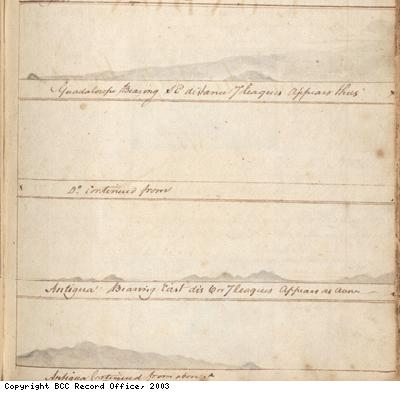 Guadaloupe Bearing SE distance 7 leagues Appears thus
Do. Continued from
Antigua Bearing East dis 6 or 7 leagues Appears as
Antigua Continued from above
Copyright BCC Record Office, 2003